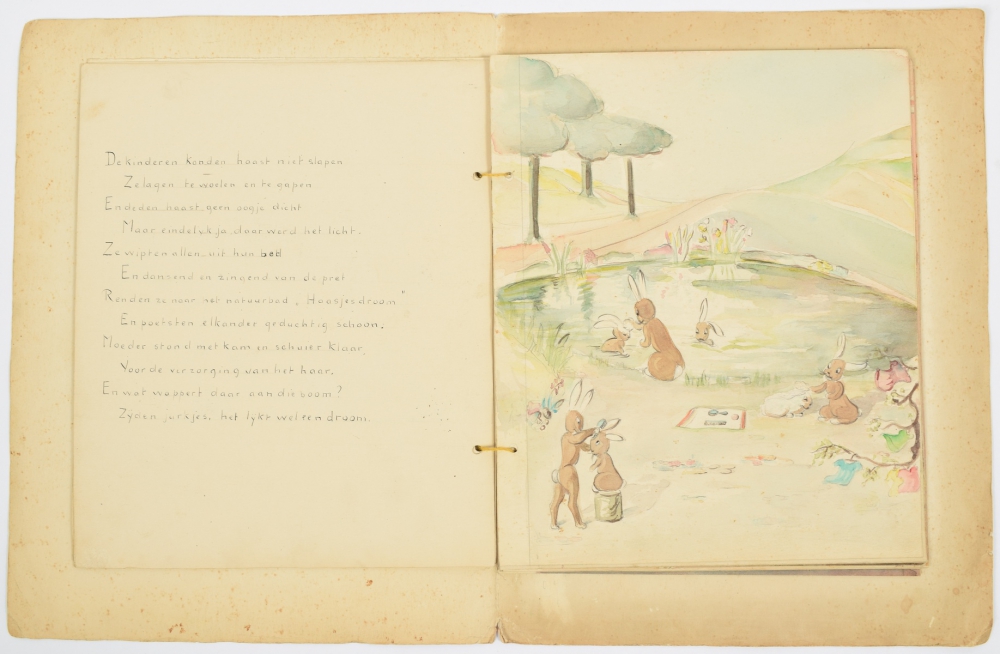 De kinderen konden haast niet slapen
Ze lagen te woelen en te gapen
En deden haast geen oogje dicht
Maar eindelyk ja, daar werd het licht.
Ze wipten allen uit hun bed
En dansend en zingend van de pret
Renden ze naar het natuurbad „Haasjesdroom"
En poetsten elkander geduchtig schoon,
Moeder stond met kam en schuier klaar,
Voor de verzorging van het haar.
En wat wappert daar aan die boom?
Zyden jurkjes, het lykt wel een droom.